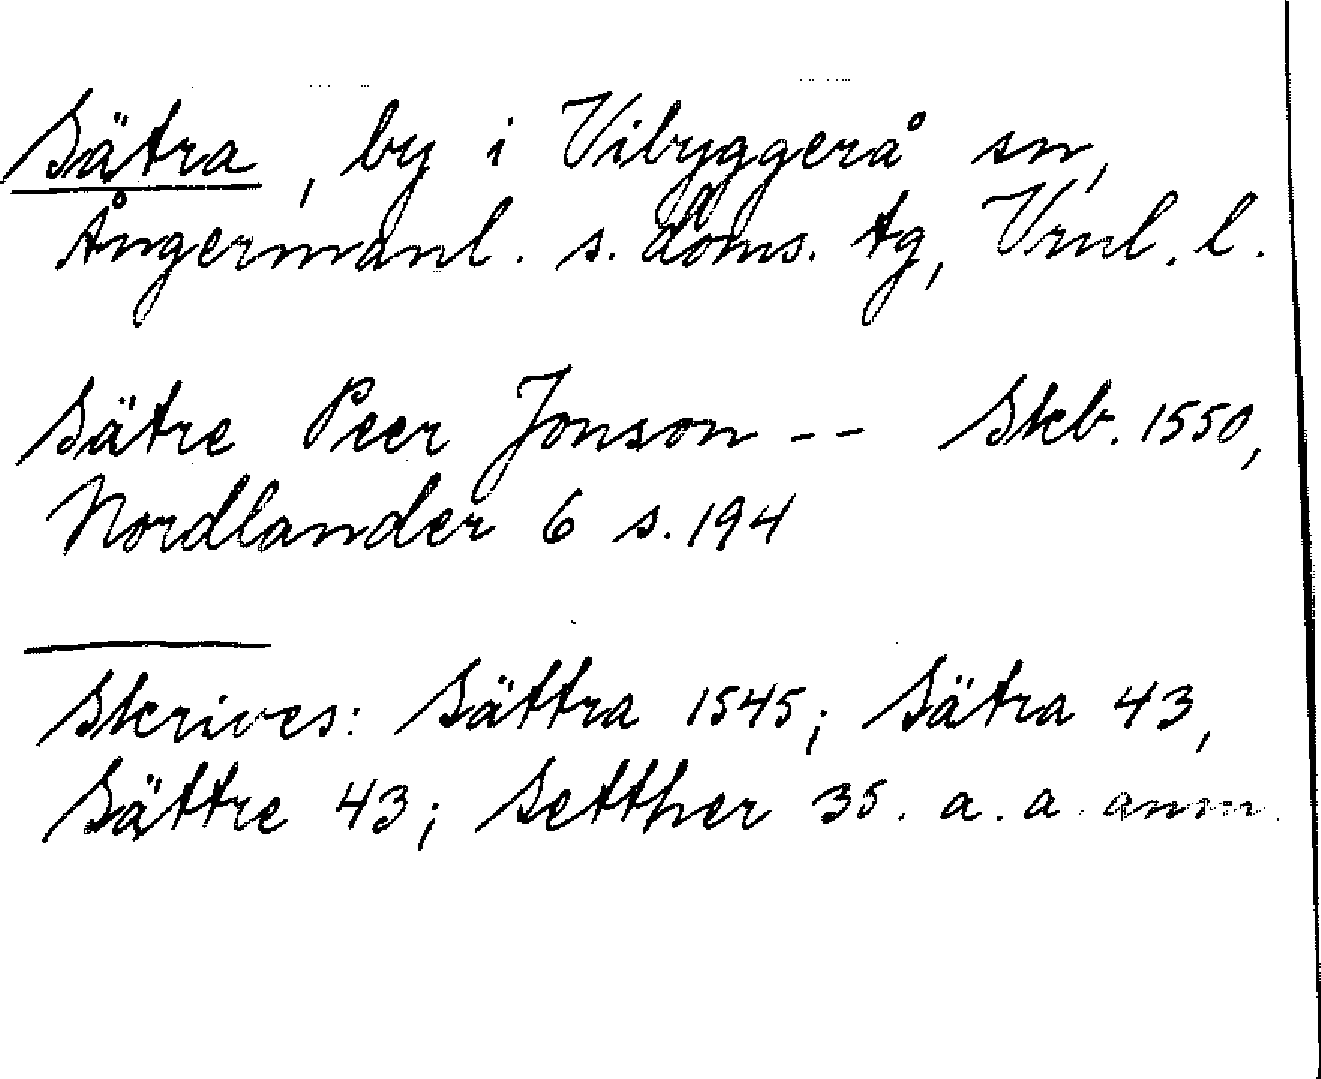 Sätra, by i Vibyggerå sn,
Ångermanl. s. doms. tg, Vrnl. l.
Sätre Peer Jonson -- Skb. 1550,
Nordlander 6 s. 194
Skrives: Sättra 1545; Sätra 43,
Sättre 43; Setther 35. a. a. anm.